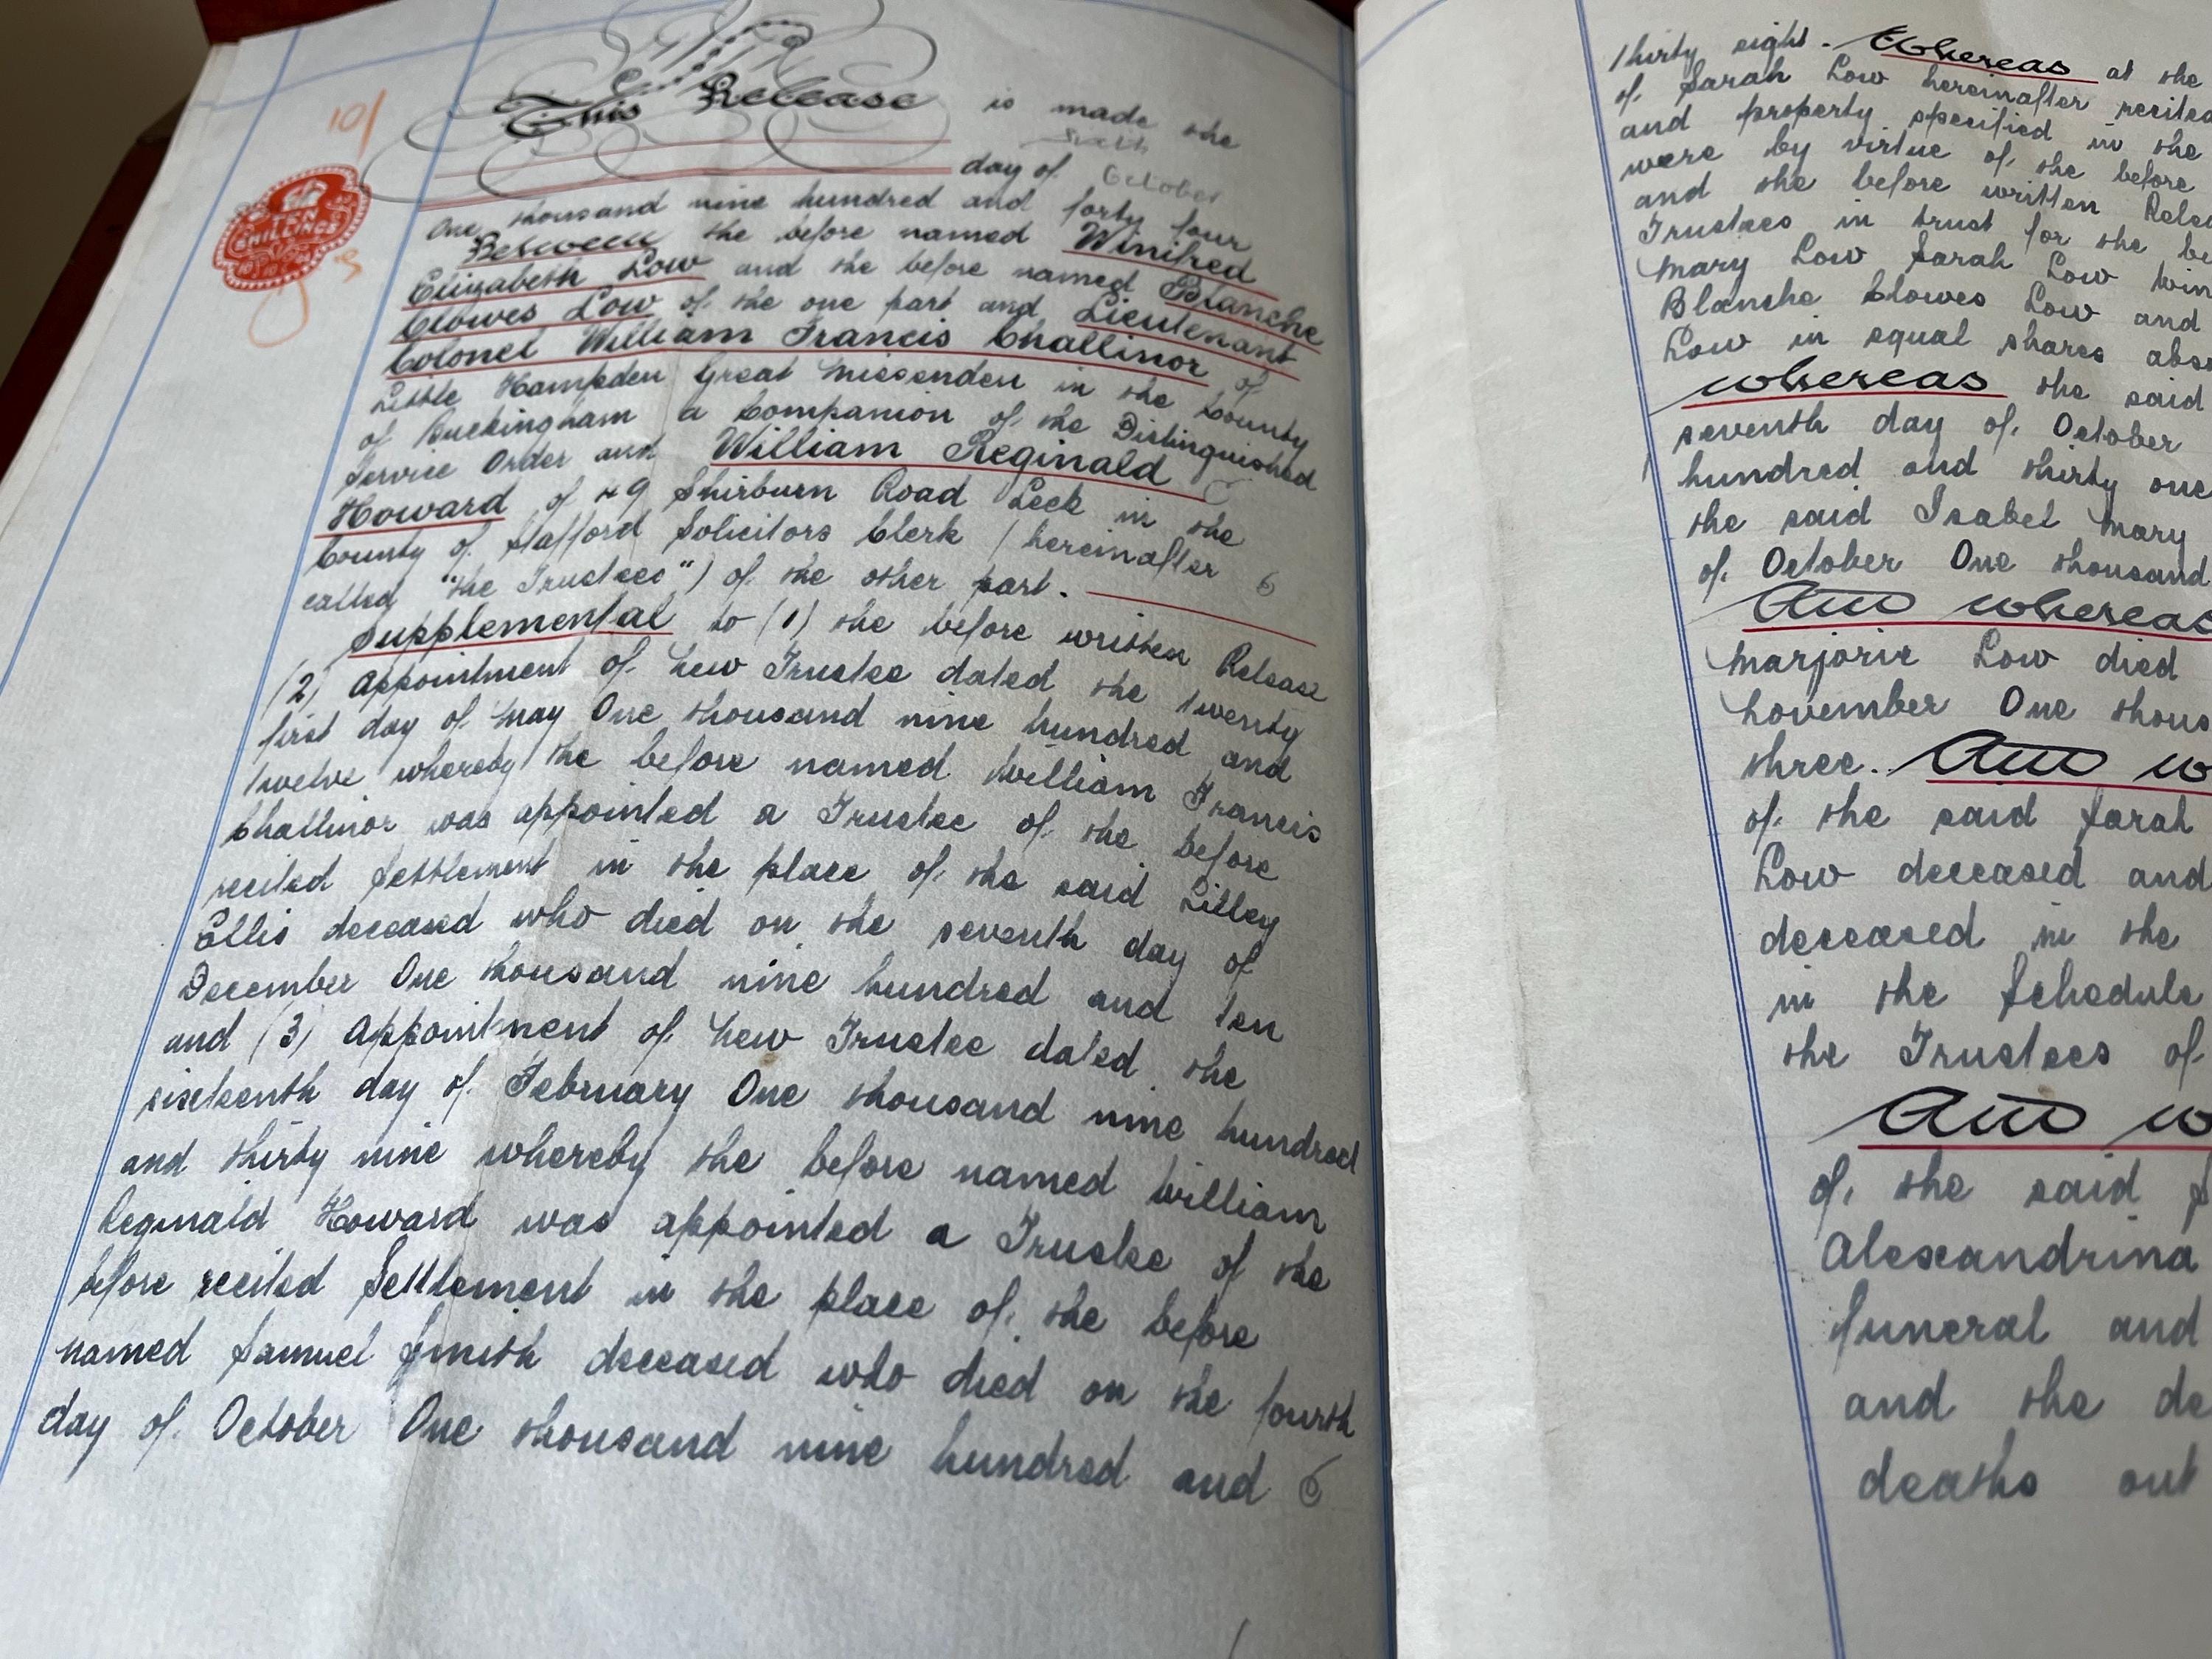 10/
TEN
SHILLINGS
This Release is made the
day of October
One thousand nine hundred and forty four
Between the before named Winifred
Elizabeth Low and the before named Blanche
Clowes Low of the one part and Lieutenant
Colonel William Francis Challinor of
Little Hampden Great Missenden in the County
of Buckingham a Companion of the Distinguished
Service Order and William Reginald
Howard of 49 Shirburn Road Leek in the
County of Stafford Solicitors Clerk (hereinafter
called "the Trustees") of the other part.
Supplemental to (1) the before written Release
(2) Appointment of New Trustee dated the twenty
first day of May One thousand nine hundred and
twelve whereby the before named William Francis
Challinor was appointed a Trustee of the before
recited Settlement in the place of the said Lilley
Ellis deceased who died on the seventh day of
December One thousand nine hundred and ten
and (3) Appointment of New Trustee dated the
sixteenth day of February One thousand nine hundred
and thirty nine whereby the before named William
Reginald Howard was appointed a Trustee of the
before recited Settlement in the place of the before
named Samuel Smith deceased who died on the fourth
day of October One thousand nine hundred and
thirty eight. Whereas at the
of Sarah Low hereinafter recited
and property specified in the
were by virtue of the before
and the before written
Trustees in trust for the
Mary Low Sarah Low
Blanche Clowes Low and
Low in equal shares
Whereas the said
seventh day of October
hundred and thirty one
the said Isabel Mary
of October One thousand
And whereas
Marjorie Low died
November One
three. And
of the said Sarah
Low deceased and
deceased in the
in the Schedule
the Trustees of
And
of the said
Alexandrina
funeral and
and the
deaths out